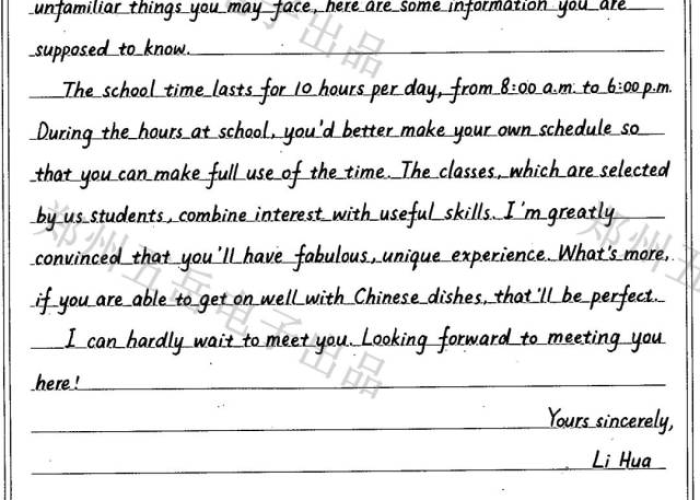 unfamiliar things you may face, here are some information you are
supposed to know.
The school time lasts for 10 hours per day, from 8:00 a.m. to 6:00 p.m.
During the hours at school, you'd better make your own schedule so
that you can make full use of the time. The classes, which are selected
by us students, combine interest with useful skills. I'm greatly
convinced that you'll have fabulous, unique experience. What's more,
if you are able to get on well with Chinese dishes, that'll be perfect.
I can hardly wait to meet you. Looking forward to meeting you
here!
Yours sincerely,
Li Hua
郑州五岳电子出品
子出品
郑州五